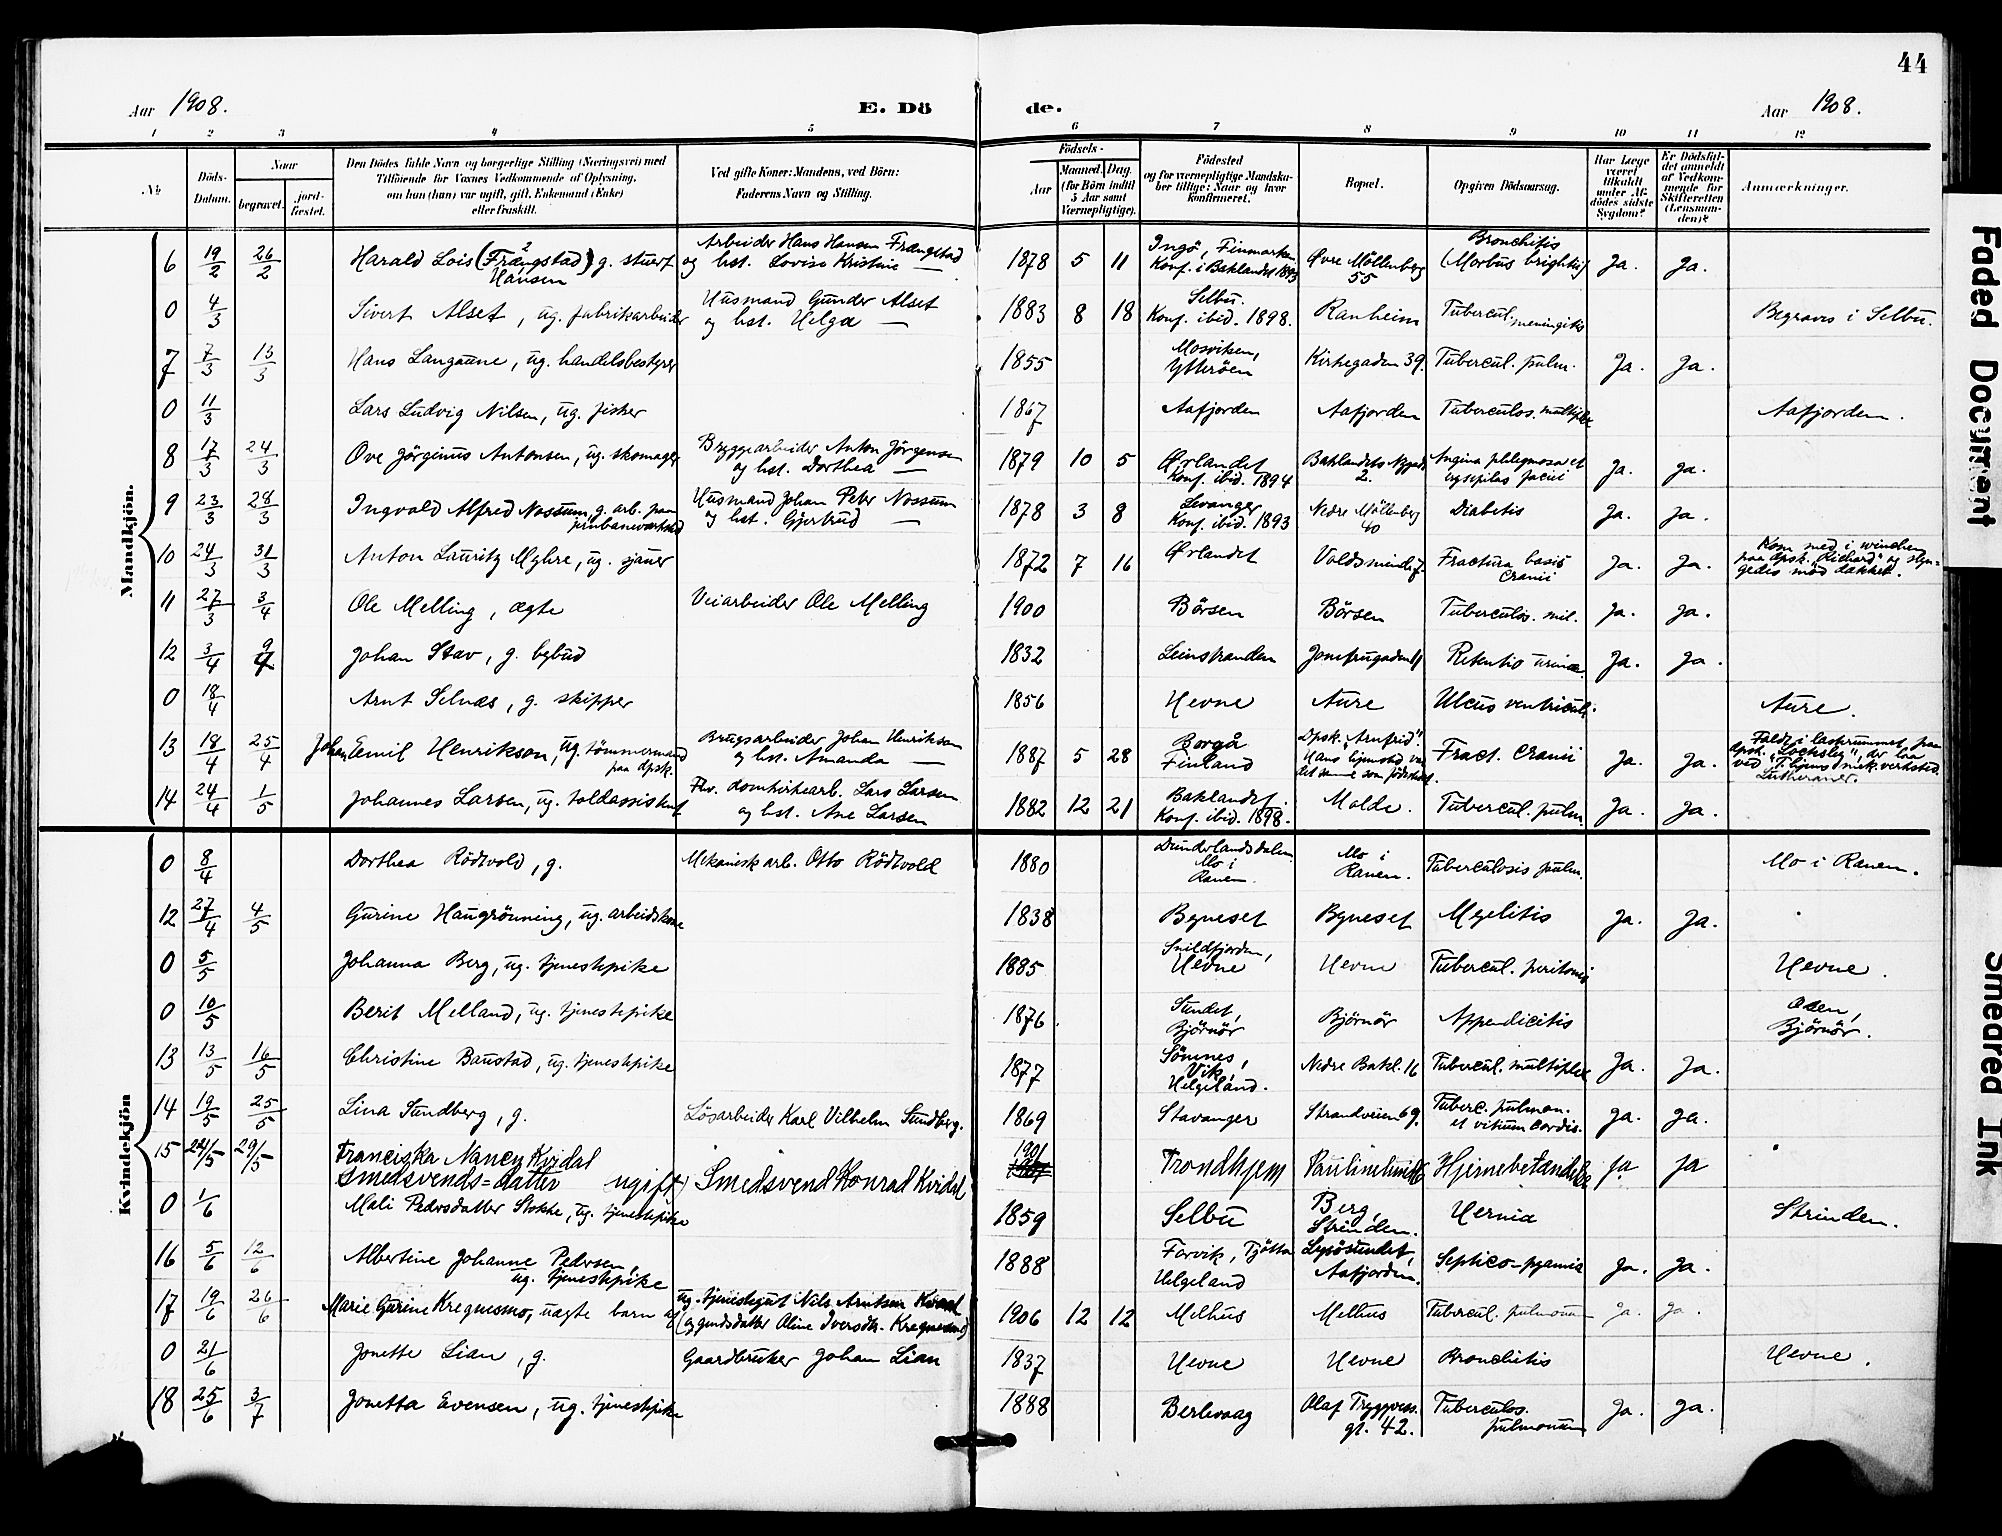 44
Aar 1908.
E. Dö
de.
Aar 1908.
1 2 3 4 5 6 7 8 9 10 11 12
№
Döds-Datum.
Naar
begravet.
jord-fæstet.
Den Dödes fulde Navn og borgerlige Stilling (Næringsvei) med
Tilföiende for Voxnes Vedkommende af Oplysning,
om han (hun) var ugift, gift, Enkemand (Enke)
eller fraskilt.
Ved gifte Koner: Mandens, ved Börn:
Faderens Navn og Stilling.
Födsels-
Aar
Maaned. Dag.
(for Börn indtil
5 Aar samt
Værnepligtige).
Födested
og for værnepligtige Mandska-
ber tillige: Naar og hvor
konfirmeret.
Bopæl.
Opgiven Dödsaarsag.
Har Læge
været
tilkaldt
under Af-
dödes sidste
Sygdom?
Er Dödsfal-
det anmeldt
af Vedkom-
mende for
Skifteretten
(Lensman-
den)?
Anmærkninger.
Mandkjön.
6 19/2 26/2 Harald Lois (Frængstad) g. stuert Hansen Arbeider Hans Hansen Frængstad og hst. Lovise Kristine — 1878 5 11 Ingö, Finmarken Konf. i Baklandet 1893 Øvre Möllenberg 55 Bronchitis (Morbus brightii) Ja. Ja.
0 4/3 Sivert Alset, ug. fabrikarbeider Husmand Gunder Alset og hst. Helga — 1883 8 18 Selbu. Konf. ibid. 1898. Ranheim Tubercul. meningitis Begraves i Selbu.
7 7/3 13/3 Hans Langaune, ug. handelsbestyrer 1855 Mosviken, Ytterøen Kirkegaden 39. Tubercul. pulm. Ja. Ja.
0 11/3 Lars Ludvig Nilsen, ug. fisker 1867 Aafjorden Aafjorden Tuberculos. multiplex Aafjorden.
8 17/3 24/3 Ove Jörginus Antonsen, ug. skomager Bryggearbeider Anton Jörgensen og hst. Dorthea — 1879 10 5 Ørlandet Konf. ibid. 1894 Baklandets 2. Angina phlegmosa et erysipelas faciei Ja. Ja.
9 23/3 28/3 Ingvald Alfred Nossum, g. arb. paa Husmand Johan Peter Nossum og hst. Gjertrud — 1878 3 8 Levanger Konf. ibid. 1893 Nedre Möllenberg 40 Diabetis Ja. Ja.
10 24/3 31/3 Anton Lauritz Myhre, ug. sjauer 1872 7 16 Ørlandet Voldsminde 7. Fractura basis Cranii Ja. Ja. Kom med i winchen paa dpsk. "Richard" og slyn-gedes mod dækket.
11 27/3 3/4 Ole Melling, ægte Veiarbeider Ole Melling 1900 Börsen Börsen Tuberculos. mil. Ja. Ja.
12 3/4 9/4 Johan Stav, g. bybud 1832 Leinstranden Jomfrugaden 11 Retentio urinæ Ja. Ja.
0 18/4 Arnt Selnæs, g. skipper 1856 Hevne Aure Ulcus ventriculi. Aure.
13 18/4 25/4 Johan Emil Henrikson, ug. tömmermand paa dpsk. Brugsarbeider Johan Henrikson og hst. Amanda — 1887 5 28 Borgå Finland Dpsk. "Arnfrid". Hans hjemsted var det samme som födested. Fract. Cranii Ja. Ja. Faldt i lastrummet paa dpsk. "Locksley", der laa ved T.hjems mek. verksted. Lutheraner.
14 24/4 1/5 Johannes Larsen, ug. toldassistent Fhv. domkirkearb. Lars Larsen og hst. Ane Larsen 1882 12 21 Baklandet. Konf. ibid. 1898. Molde. Tubercul. pulm. Ja. Ja.
Kvindekjön
0 8/4 Dorthea Rödtvold, g. Mekanisk arb. Otto Rödtvold 1880 Dunderlandsdalen. Mo i Ranen. Mo i Ranen. Tuberculosis pulm. Mo i Ranen.
12 27/4 4/5 Gurine Haugrönning, ug. arbeidskone 1838 Byneset Byneset Myelitis Ja. Ja.
0 5/5 Johanna Berg, ug. tjenestepike 1885 Snildfjorden, Hevne Hevne Tubercul. peritonei Hevne.
0 10/5 Berit Melland, ug. tjenestepike 1876. Sundet, Björnör Björnör Appendicitis Osen, Björnör.
13 13/5 16/5 Christine Baustad, ug. tjenestepike 1877 Sömnes, Vik, Helgeland. Nedre Bakl. 16 Tubercul. multiplex Ja. Ja.
14 19/5 25/5 Lina Sundberg, g. Lösarbeider Karl Vilhelm Sundberg. 1869 Stavanger Strandveien 69. Tuberc. pulmon. et vitium cordis. Ja. Ja.
15 22/5 29/5 Franciska Nancy Kvidal Smedsvends=datter ugift) Smedsvend Konrad Kvidal 1901 Trondhjem Paulinelund Hjernebetændelse Ja Ja
0 1/6 Mali Pedersdatter Stokke, ug. tjenestepike 1859 Selbu Berg, Strinden. Hernia Strinden.
16 5/6 12/6 Albertine Johanne Pedersen, ug. tjenestepike 1888 Forvik, Tjötta Helgeland Lysösundet, Aafjorden. Septico-pyæmia Ja. Ja.
17 19/6 26/6 Marie Gurine Kregnesmo, uægte barn af ug. tjenestegut Nils Arntsen og gaardsdatter Aline Iversdtr. Kregnesmo) 1906 12 12 Melhus Melhus Tubercul. pulmonum Ja. Ja.
0 21/6 Jonette Lian, g. Gaardbruker Johan Lian 1837 Hevne Hevne Bronchitis Hevne.
18 25/6 3/7 Jonetta Evensen, ug. tjenestepike 1888 Berlevaag Olaf Trygvess. gt. 42. Tuberculos. pulmonum Ja. Ja.
Faded Document
Smeared Ink